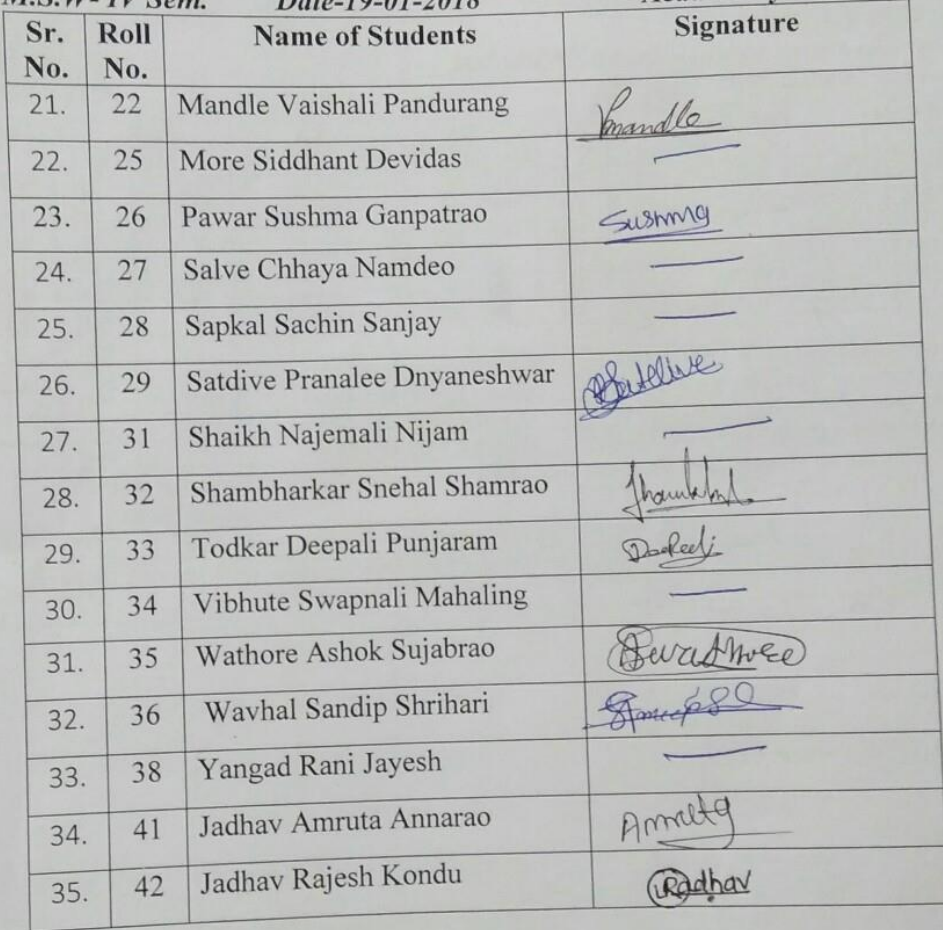 M.S.W- IV Sem. Date-19-01-2018
Sr. No. Roll No. Name of Students Signature
21. 22 Mandle Vaishali Pandurang Vmandle
22. 25 More Siddhant Devidas —
23. 26 Pawar Sushma Ganpatrao Sushma
24. 27 Salve Chhaya Namdeo —
25. 28 Sapkal Sachin Sanjay —
26. 29 Satdive Pranalee Dnyaneshwar
27. 31 Shaikh Najemali Nijam —
28. 32 Shambharkar Snehal Shamrao
29. 33 Todkar Deepali Punjaram
30. 34 Vibhute Swapnali Mahaling —
31. 35 Wathore Ashok Sujabrao
32. 36 Wavhal Sandip Shrihari
33. 38 Yangad Rani Jayesh —
34. 41 Jadhav Amruta Annarao Amruta
35. 42 Jadhav Rajesh Kondu Radhav